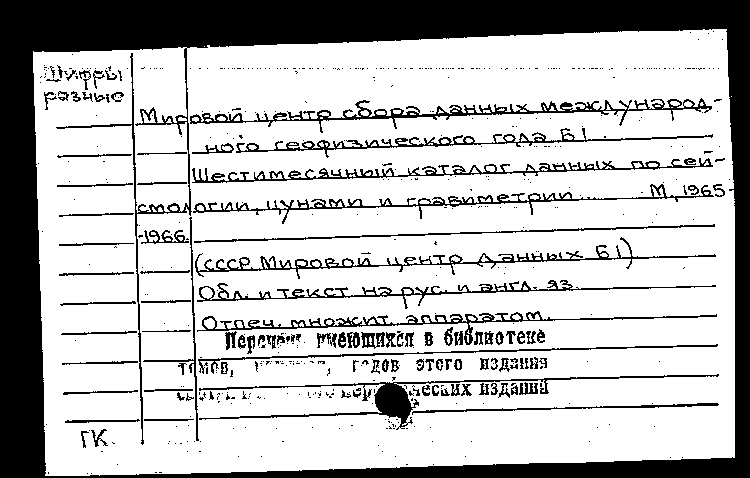 Шифры
разные
Мировой центр сбора данных международ-
ного геофизического года Б1.
Шестимесячный каталог данных по сей-
смологии, цунами и гравиметрии... М., 1965-
-1966.
(СССР. Мировой центр данных Б1)
Обл. и текст на рус. и англ. яз.
Отпеч. множит. аппаратом.
Перечень имеющихся в библиотеке
томов, годов этого издания
изданий
ГК.